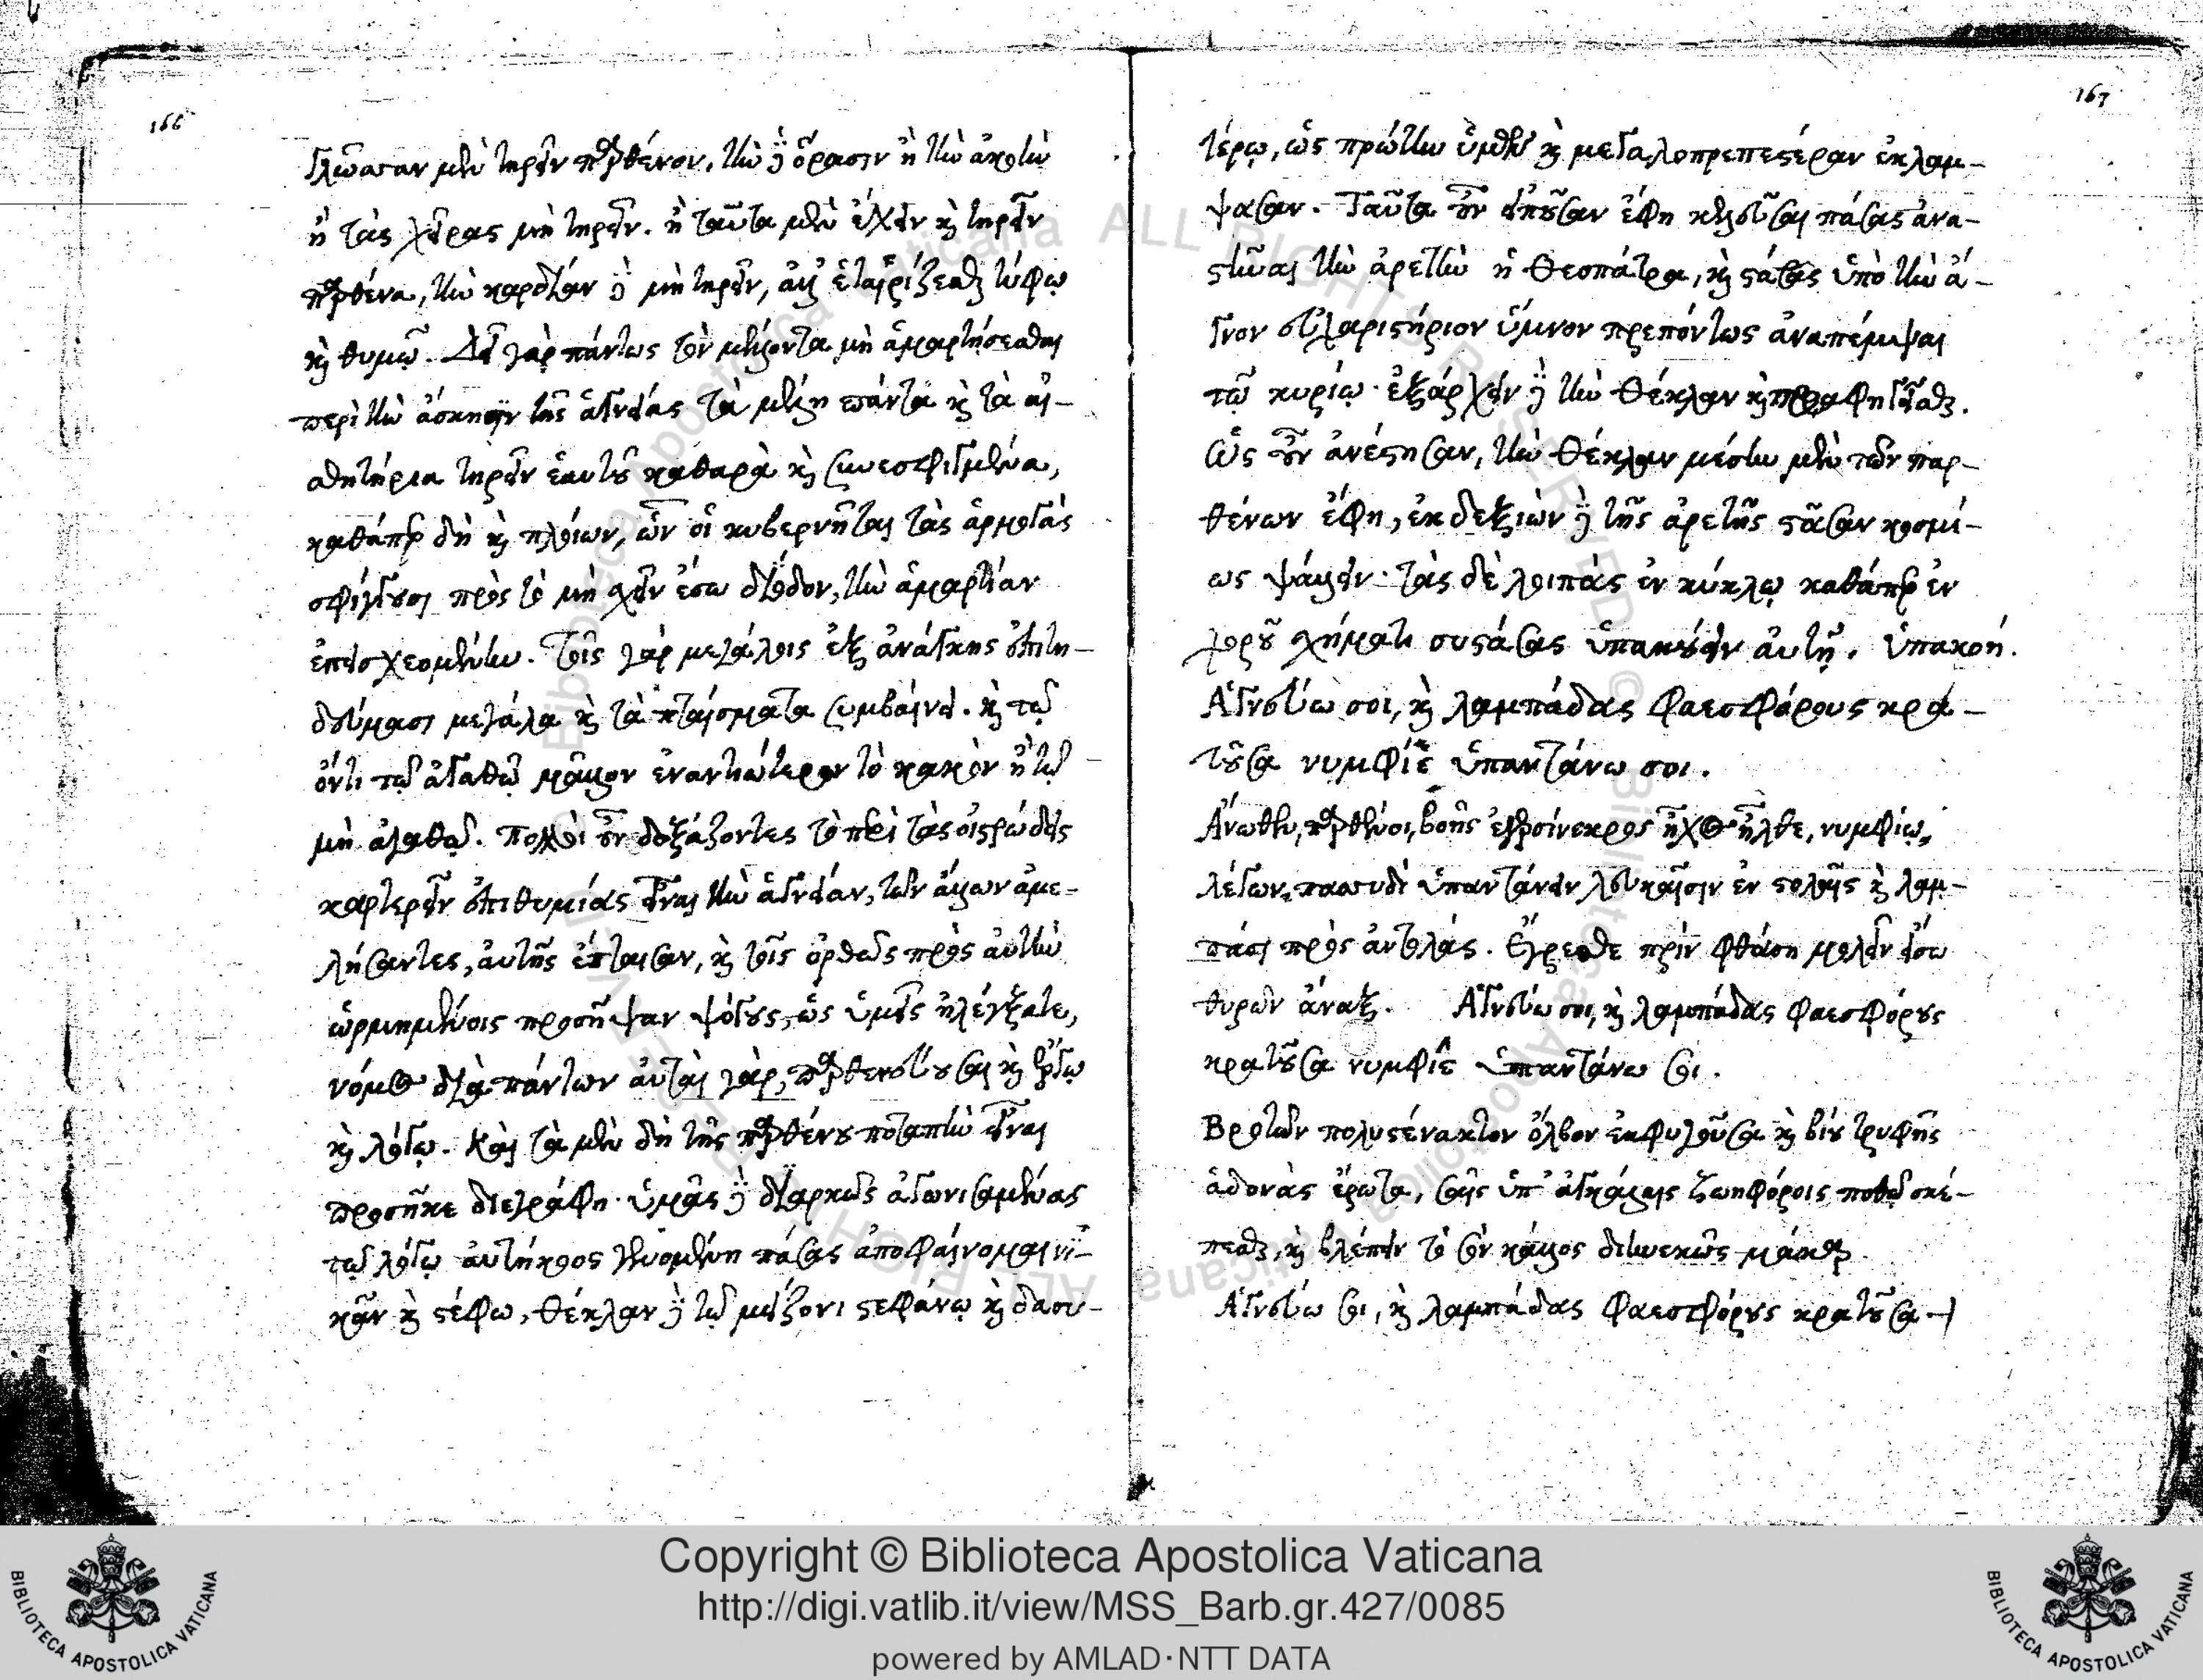 166
γλῶσσαν μὲν τηρεῖν παρθένον, τὴν δὲ ὅρασιν ἢ τὴν ἀκοὴν
ἢ τὰς χεῖρας μὴ τηρεῖν. ἢ ταῦτα μὲν ἔχειν καὶ τηρεῖν
παρθένα, τὴν καρδίαν δὲ μὴ τηρεῖν, ἀλλ' ἑταιρίζεσθαι τύφῳ
καὶ θυμῷ. Δεῖ γὰρ πάντως τὸν μέλλοντα μὴ ἁμαρτήσεσθαι
περὶ τὴν ἄσκησιν τῆς ἁγνείας τὰ μέλη πάντα καὶ τὰ αἰ-
σθητήρια τηρεῖν ἑαυτοῦ καθαρὰ καὶ συνεσφιγμένα,
καθάπερ δὴ καὶ πλοίων, ὧν οἱ κυβερνῆται τὰς ἁρμογὰς
σφίγγουσι πρὸς τὸ μὴ σχεῖν ἔσω δίοδον, τὴν ἁμαρτίαν
ἐπεισχεομένην. Τοῖς γὰρ μεγάλοις ἐξ ἀνάγκης ἐπιτη-
δεύμασι μεγάλα καὶ τὰ πταίσματα συμβαίνει. καὶ τῷ
ὄντι τῷ ἀγαθῷ μᾶλλον ἐναντιώτερον τὸ κακὸν ἢ τῷ
μὴ ἀγαθῷ. Πολλοὶ οὖν δοξάζοντες τὸ περὶ τὰς οἰστρώδεις
καρτερεῖν ἐπιθυμίας εἶναι τὴν ἁγνείαν, τῶν ἄλλων ἀμε-
λήσαντες, αὐτῆς ἔπταισαν, καὶ τοῖς ὀρθῶς πρὸς αὐτὴν
ὡρμημένοις προσῆψαν ψόγους, ὡς ὑμεῖς ἠλέγξατε,
νόμος διὰ πάντων αὐταὶ γὰρ, παρθενεύουσαι καὶ ἔργῳ
καὶ λόγῳ. Καὶ τὰ μὲν δὴ τῆς παρθένου ποταπὴν εἶναι
προσῆκε διεγράφη· ὑμᾶς δὲ διαρκῶς ἀγωνισαμένας
τῷ λόγῳ αὐτήκοος γενομένη πάσας ἀποφαίνομαι νι-
κᾶν καὶ στέφω, Θέκλαν δὲ τῷ μείζονι στεφάνῳ καὶ δασυ-
167
τέρῳ, ὡς πρώτην ὑμῶν καὶ μεγαλοπρεπεστέραν ἐκλαμ-
ψασαν. Ταῦτα οὖν εἰποῦσαν ἔφη κελεῦσαι πάσας ἀνα-
στῆναι τὴν ἀρετὴν ἡ Θεοπάτρα, καὶ στάσας ὑπὸ τὴν ἄ-
γνον εὐχαριστήριον ὕμνον πρεπόντως ἀναπέμψαι
τῷ κυρίῳ· ἐξάρχειν δὲ τὴν Θέκλαν καὶ προαφηγεῖσθαι.
Ὡς οὖν ἀνέστησαν, τὴν Θέκλαν μέσην μὲν τῶν παρ-
θένων ἔφη, ἐκ δεξιῶν δὲ τῆς ἀρετῆς στᾶσαν κοσμί-
ως ψάλλειν· τὰς δὲ λοιπὰς ἐν κύκλῳ καθάπερ ἐν
χοροῦ σχήματι συστάσας ὑπακούειν αὐτῇ. Ὑπακοή.
Ἁγνεύω σοι, καὶ λαμπάδας φαεσφόρους κρα-
τοῦσα νυμφίε ὑπαντάνω σοι.
Ἄνωθεν, παρθένοι, βοῆς ἐγερσίνεκρος ἦχος ἦλθε, νυμφίῳ,
λέγων, πασσυδὶ ὑπαντάνειν λευκαῖσιν ἐν στολαῖς καὶ λαμ-
πάσι πρὸς ἀντολάς. Ἔγρεσθε πρὶν φθάσῃ μολεῖν εἴσω
θυρῶν ἄναξ. Ἁγνεύω σοι, καὶ λαμπάδας φαεσφόρους
κρατοῦσα νυμφίε ὑπαντάνω σοι.
Βροτῶν πολυστένακτον ὄλβον ἐκφυγοῦσα καὶ βίου τρυφῆς
ἁδονὰς ἔρωτα, σαῖς ὑπ' ἀγκάλαις ζωηφόροις ποθῶ σκέ-
πεσθαι, καὶ βλέπειν τὸ σὸν κάλλος διηνεκῶς μάκαρ.
Ἁγνεύω σοι, καὶ λαμπάδας φαεσφόρους κρατοῦσα
Copyright © Biblioteca Apostolica Vaticana
http://digi.vatlib.it/view/MSS_Barb.gr.427/0085
powered by AMLAD·NTT DATA
BIBLIOTECA APOSTOLICA VATICANA
BIBLIOTECA APOSTOLICA VATICANA